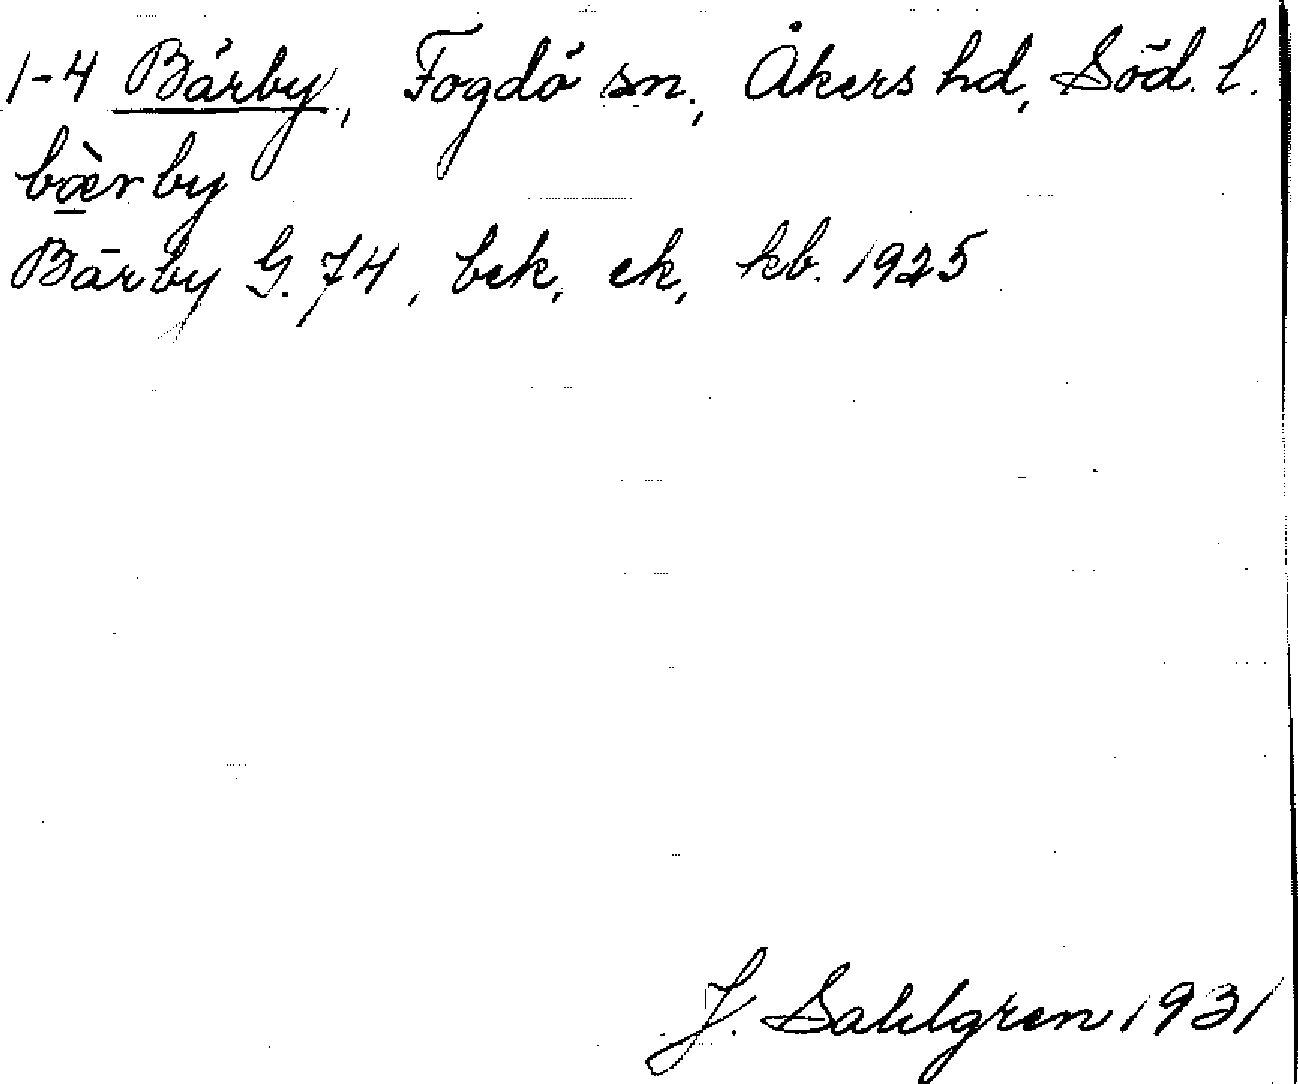 1-4 Bärby, Fogdö sn., Åkers hd, Söd. l.
bæ̀rby
Bärby G. 74, bek, ek, kb. 1925
J. Sahlgren 1931